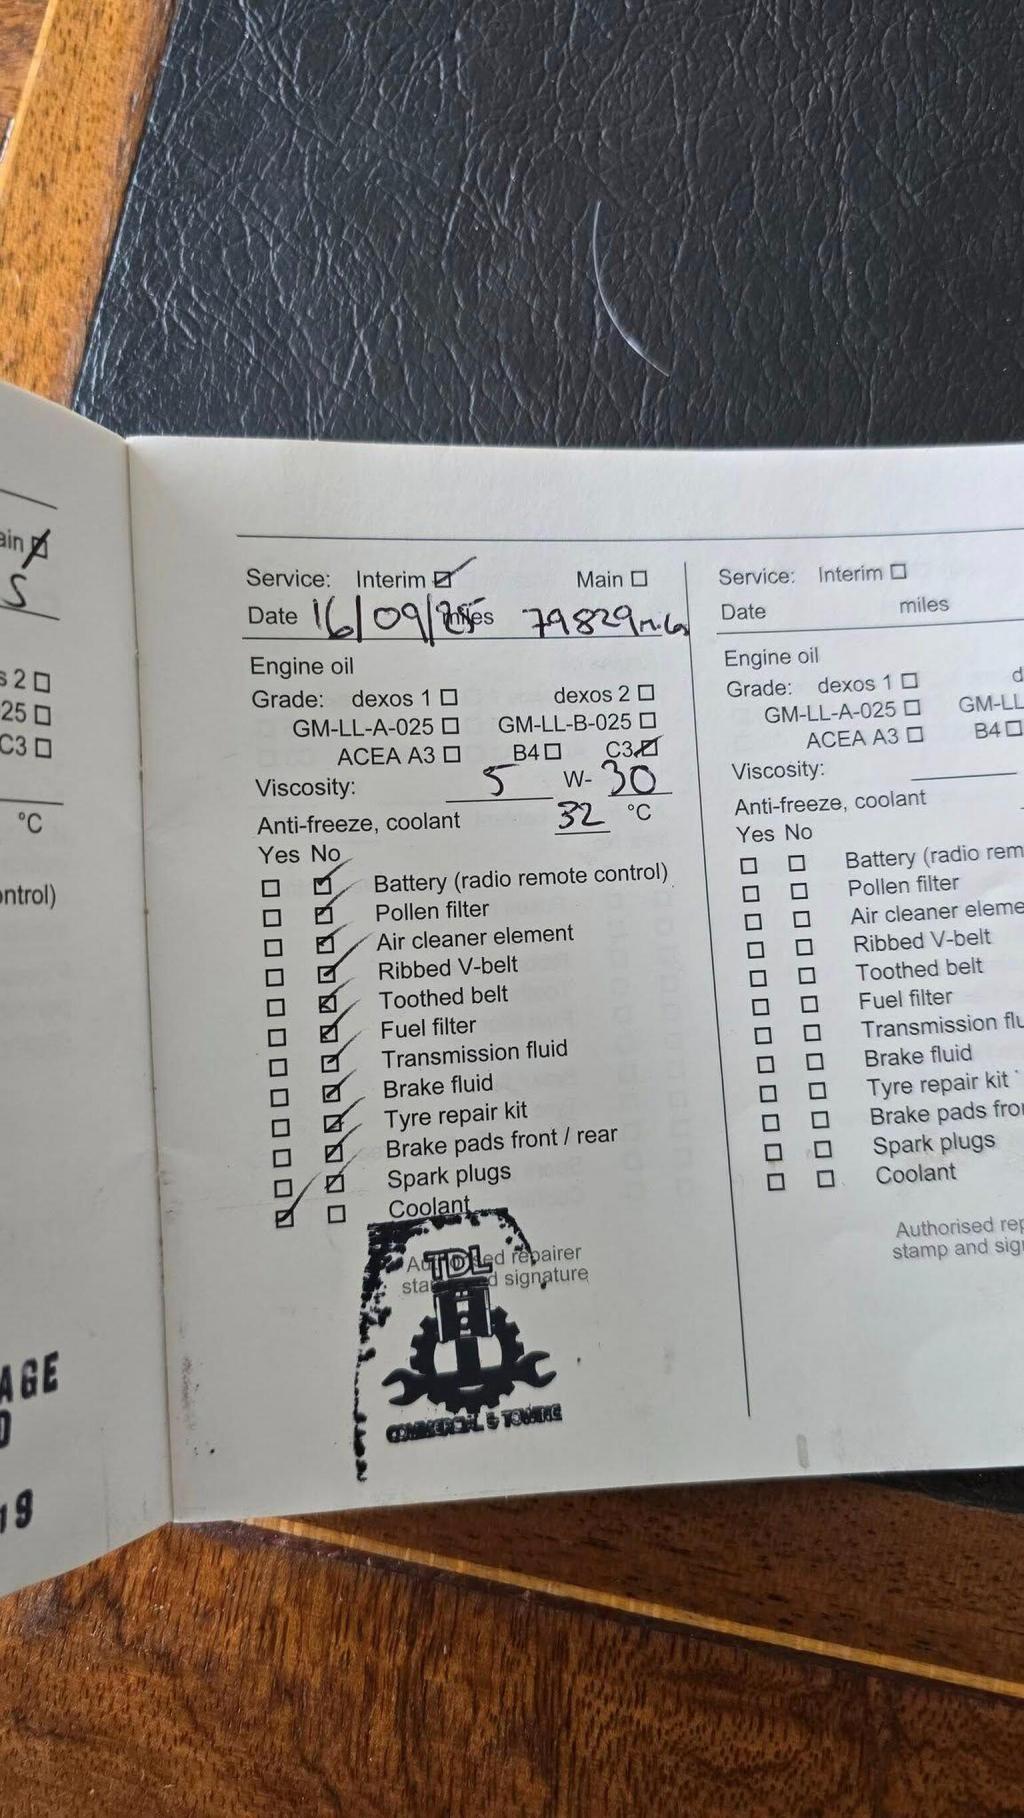 ain
S
s 2
25
C3
°C
ontrol)
AGE
19
Service: Interim Main
Date 16/09/25 miles 79829miles
Engine oil
Grade: dexos 1 dexos 2
GM-LL-A-025 GM-LL-B-025
ACEA A3 B4 C3
Viscosity: 5 W- 30
Anti-freeze, coolant 32 °C
Yes No
Battery (radio remote control)
Pollen filter
Air cleaner element
Ribbed V-belt
Toothed belt
Fuel filter
Transmission fluid
Brake fluid
Tyre repair kit
Brake pads front / rear
Spark plugs
Coolant
Authorised repairer
stamp and signature
TDL
COMMERCIAL & TOWING
Service: Interim
Date miles
Engine oil
Grade: dexos 1 d
GM-LL-A-025 GM-LL
ACEA A3 B4
Viscosity:
Anti-freeze, coolant
Yes No
Battery (radio rem
Pollen filter
Air cleaner eleme
Ribbed V-belt
Toothed belt
Fuel filter
Transmission flu
Brake fluid
Tyre repair kit
Brake pads fro
Spark plugs
Coolant
Authorised rep
stamp and sign